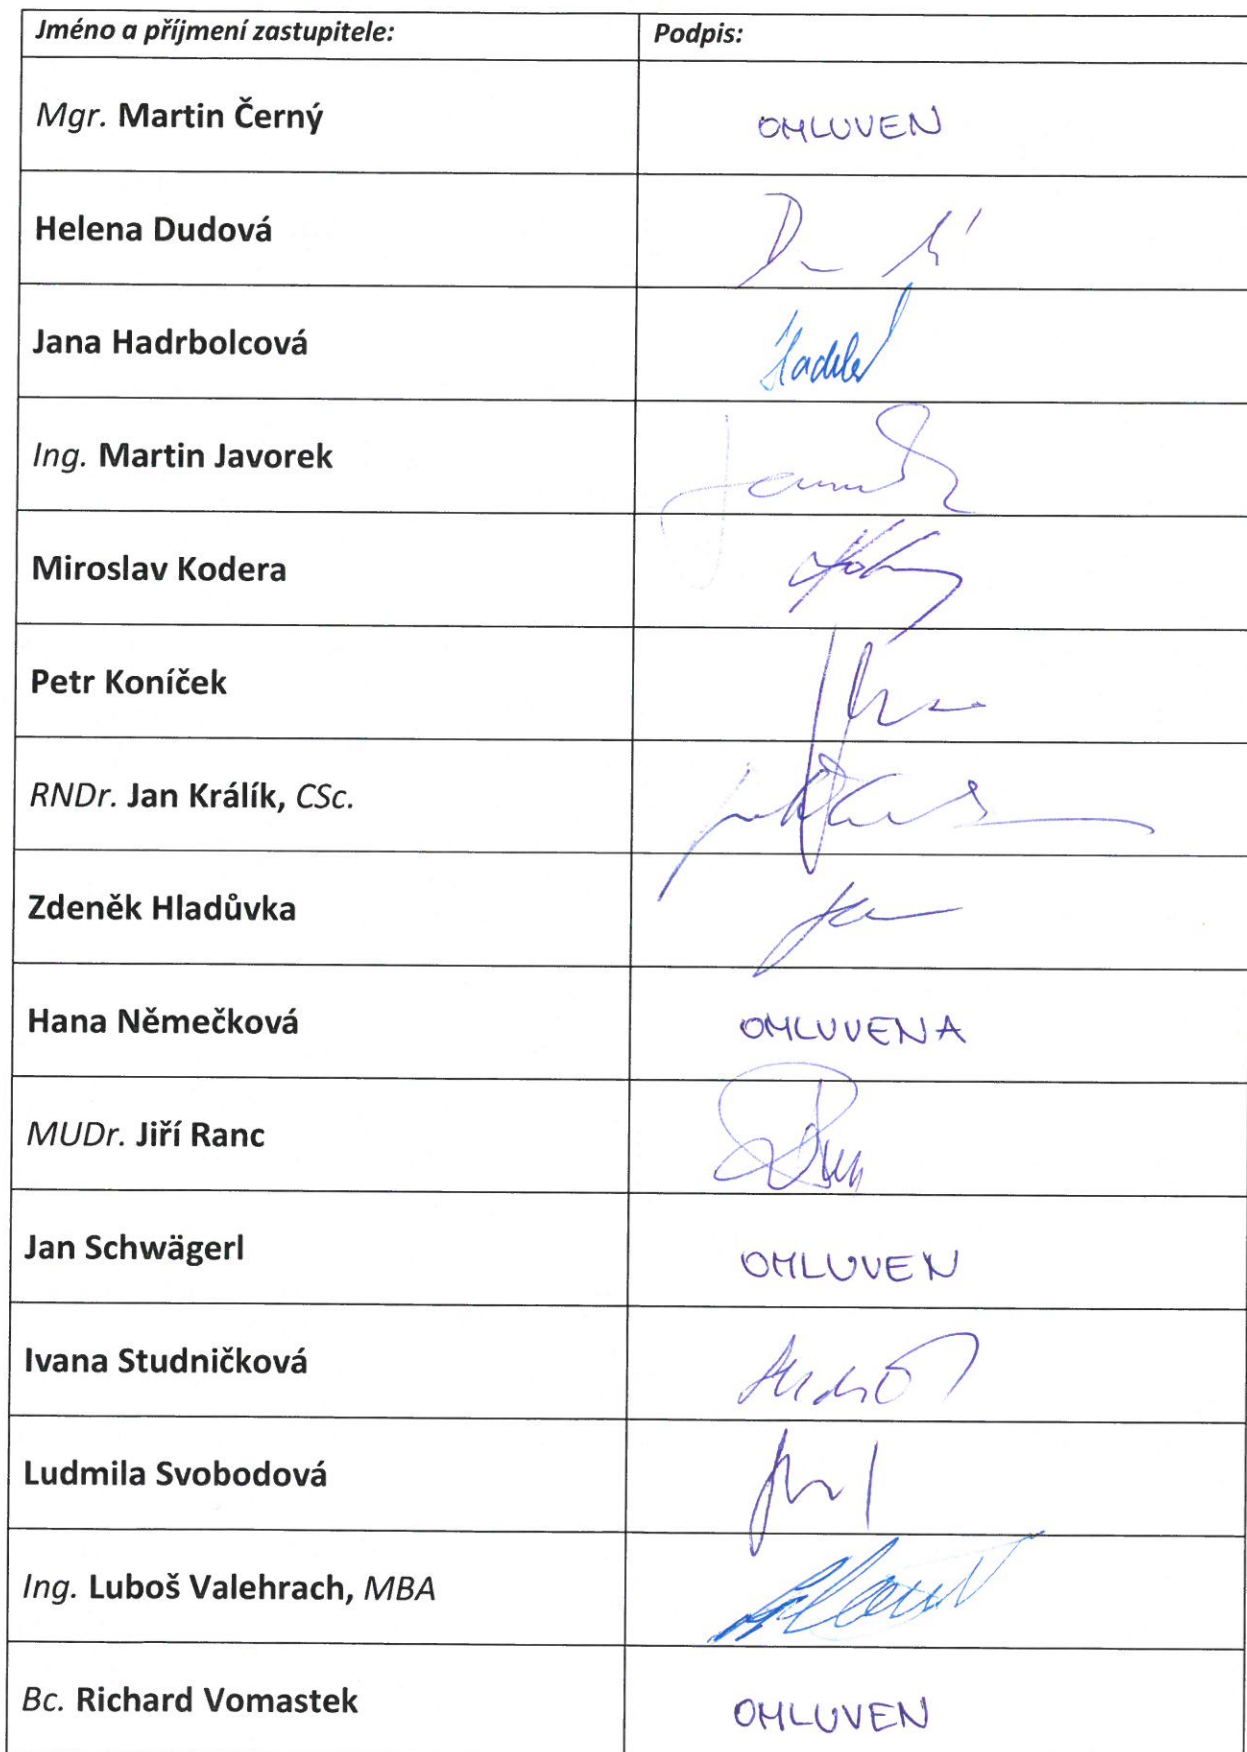 Jméno a příjmení zastupitele: Podpis:
Mgr. Martin Černý OMLUVEN
Helena Dudová
Jana Hadrbolcová
Ing. Martin Javorek
Miroslav Kodera
Petr Koníček
RNDr. Jan Králík, CSc.
Zdeněk Hladůvka
Hana Němečková OMLUVENA
MUDr. Jiří Ranc
Jan Schwägerl OMLUVEN
Ivana Studničková
Ludmila Svobodová
Ing. Luboš Valehrach, MBA
Bc. Richard Vomastek OMLUVEN